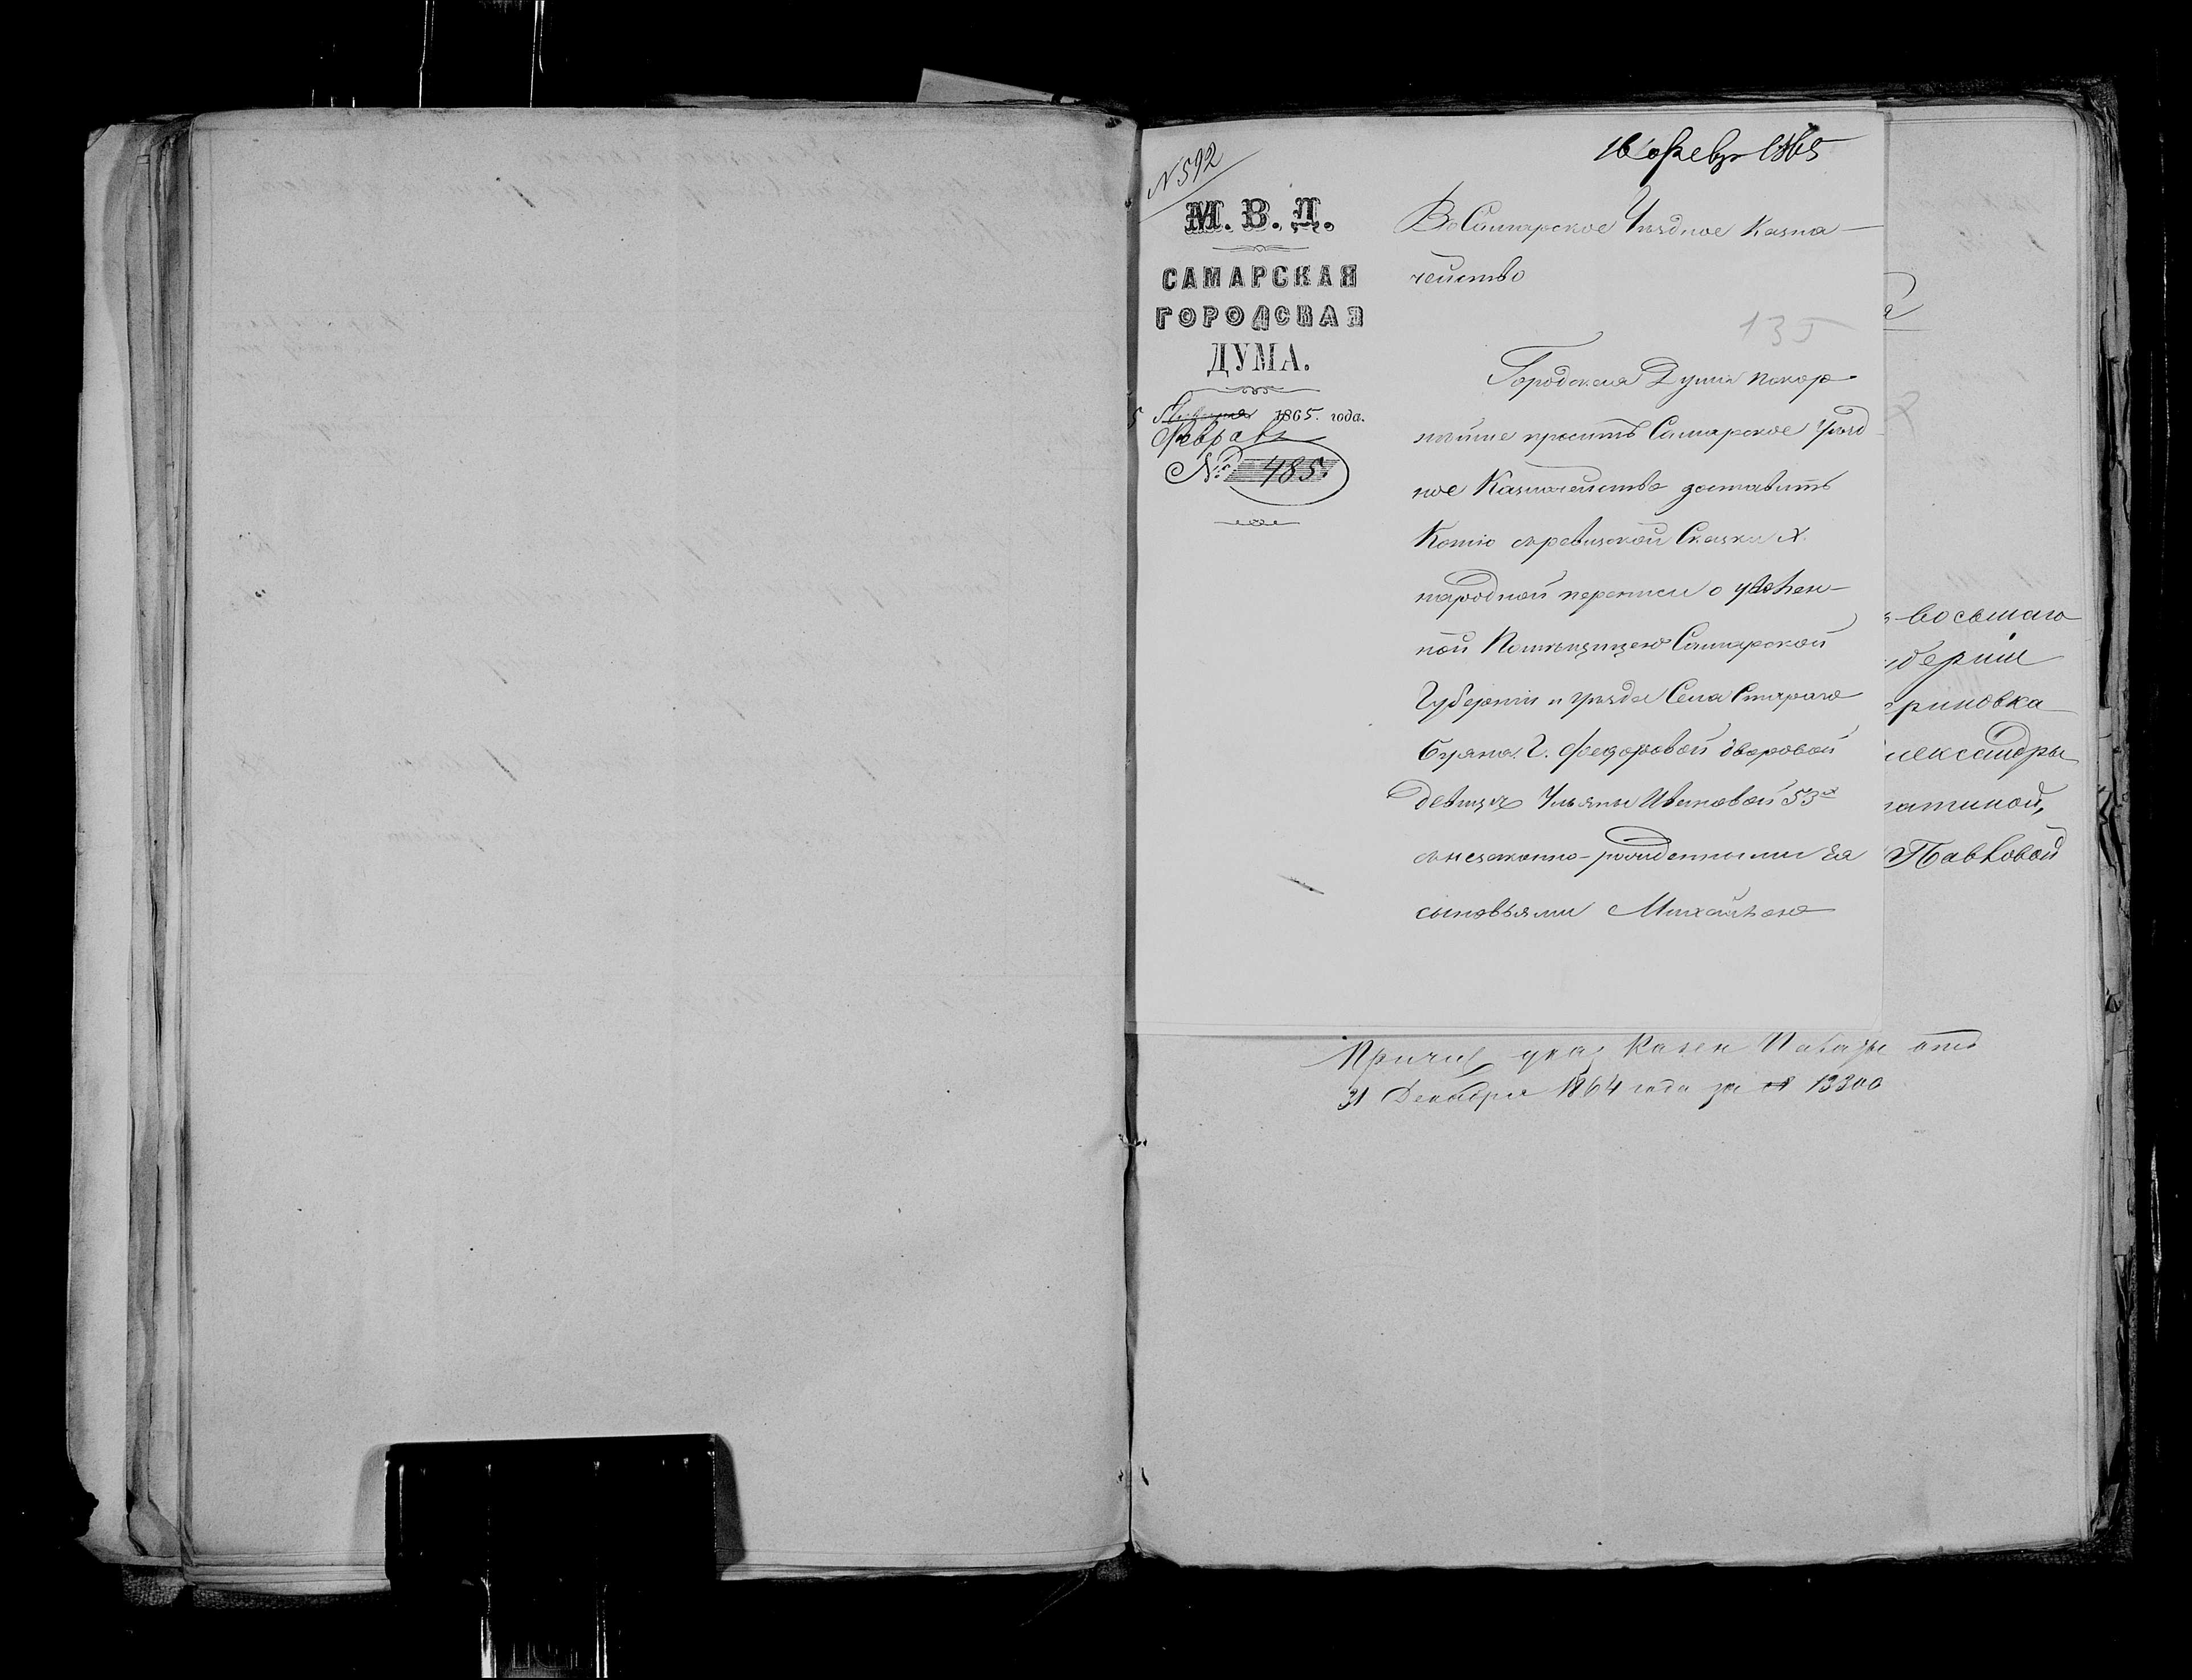 16 Февр 1865
N 592
М. В. Д.
САМАРСКАЯ
ГОРОДСКАЯ
ДУМА.
5 Января 1865. года.
Февраля
№ 485.
Въ Самарское Уѣздное Казна-
чейство
135
Городская Дума покор-
нѣйше проситъ Самарское Уѣзд
ное Казначейство доставить
Копію съ ревизской Сказки X
народной переписи о
ной Помѣщицею Самарской
Губерніи и уѣзда Села Стараго
Буяна Г. Федоровой дворовой
девицѣ Ульяны Ивановой 53х
съ незаконно-рожденными Ея
сыновьями Михайломъ
восьмаго
берніи
ериновка
лександры
атиной,
Павловой
Казен Палаты отъ
31 Декабря 1864 года за № 13300